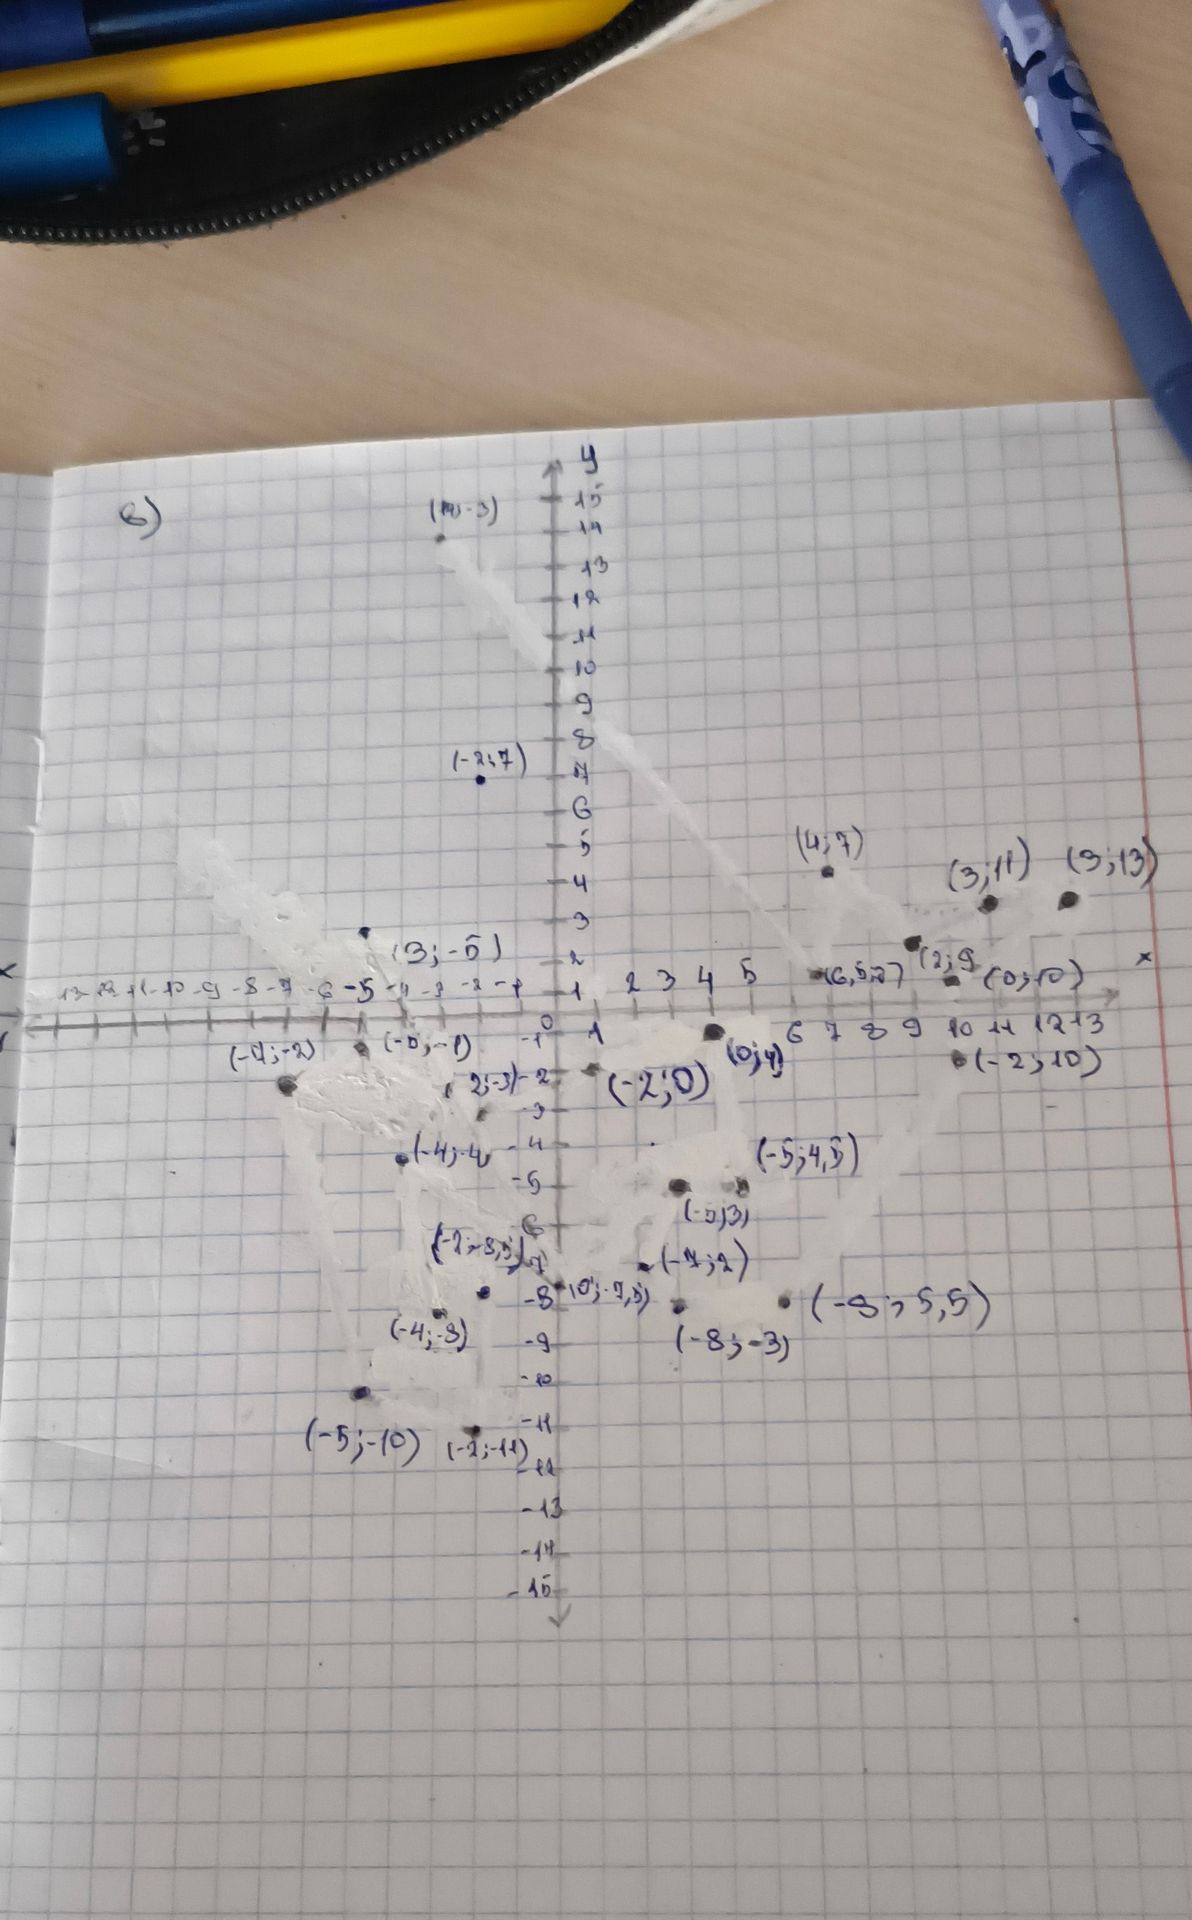 в)
y
15
14
13
12
11
10
9
8
(-2;7)
7
6
5
(4;7)
4
(3;11) (3;13)
3
(3;-5)
(2;9
2
(6,5;2)
(0;10)
x
-13 -12 -11 -10 -9 -8 -7 -6 -5 -4 -3 -2 -1
1
2 3 4 5
0
1
6 7 8 9 10 11 12 13
-1
(-7;-2)
(0;4)
(-2;10)
2;-3)
-2
(-2;0)
-3
(-4;-4
-4
(-5;4,5)
-5
(-5;3)
6
7
(-7;2)
-8
(0;-7,5)
(-8;5,5)
(-4;-8)
-9
(-8;-3)
-10
(-5;-10)
-11
(-2;-11)
-12
-13
-14
-15